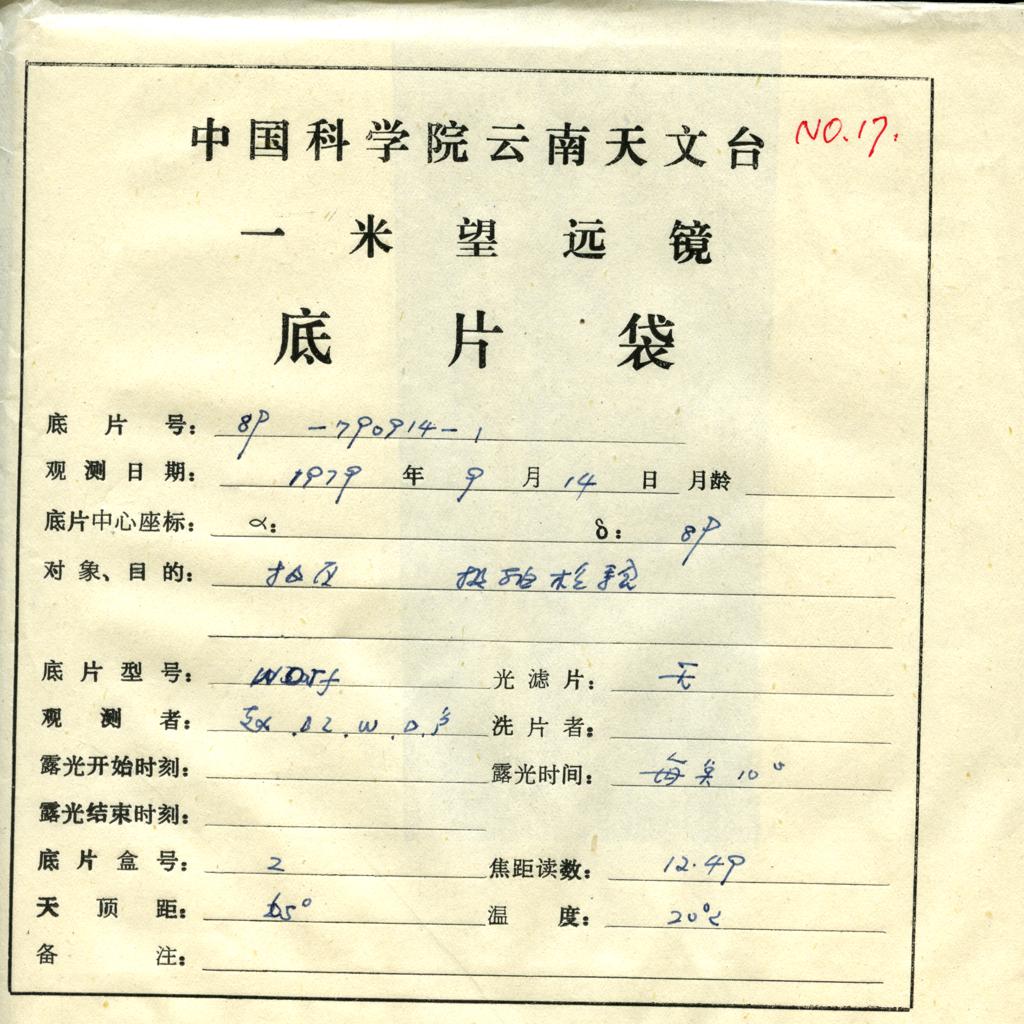 中国科学院云南天文台 NO.17.
一米望远镜
底片袋
底片号： 89 -790914-1
观测日期： 1979 年 9 月 14 日 月龄
底片中心座标： α： δ： 89
对象、目的： 极区 极轴检验
底片型号： 光滤片： 无
观测者： 赵. 洗片者：
露光开始时刻： 露光时间： 每 10
露光结束时刻：
底片盒号： 2 焦距读数： 12.49
天顶距： 65° 温度： 20℃
备注：